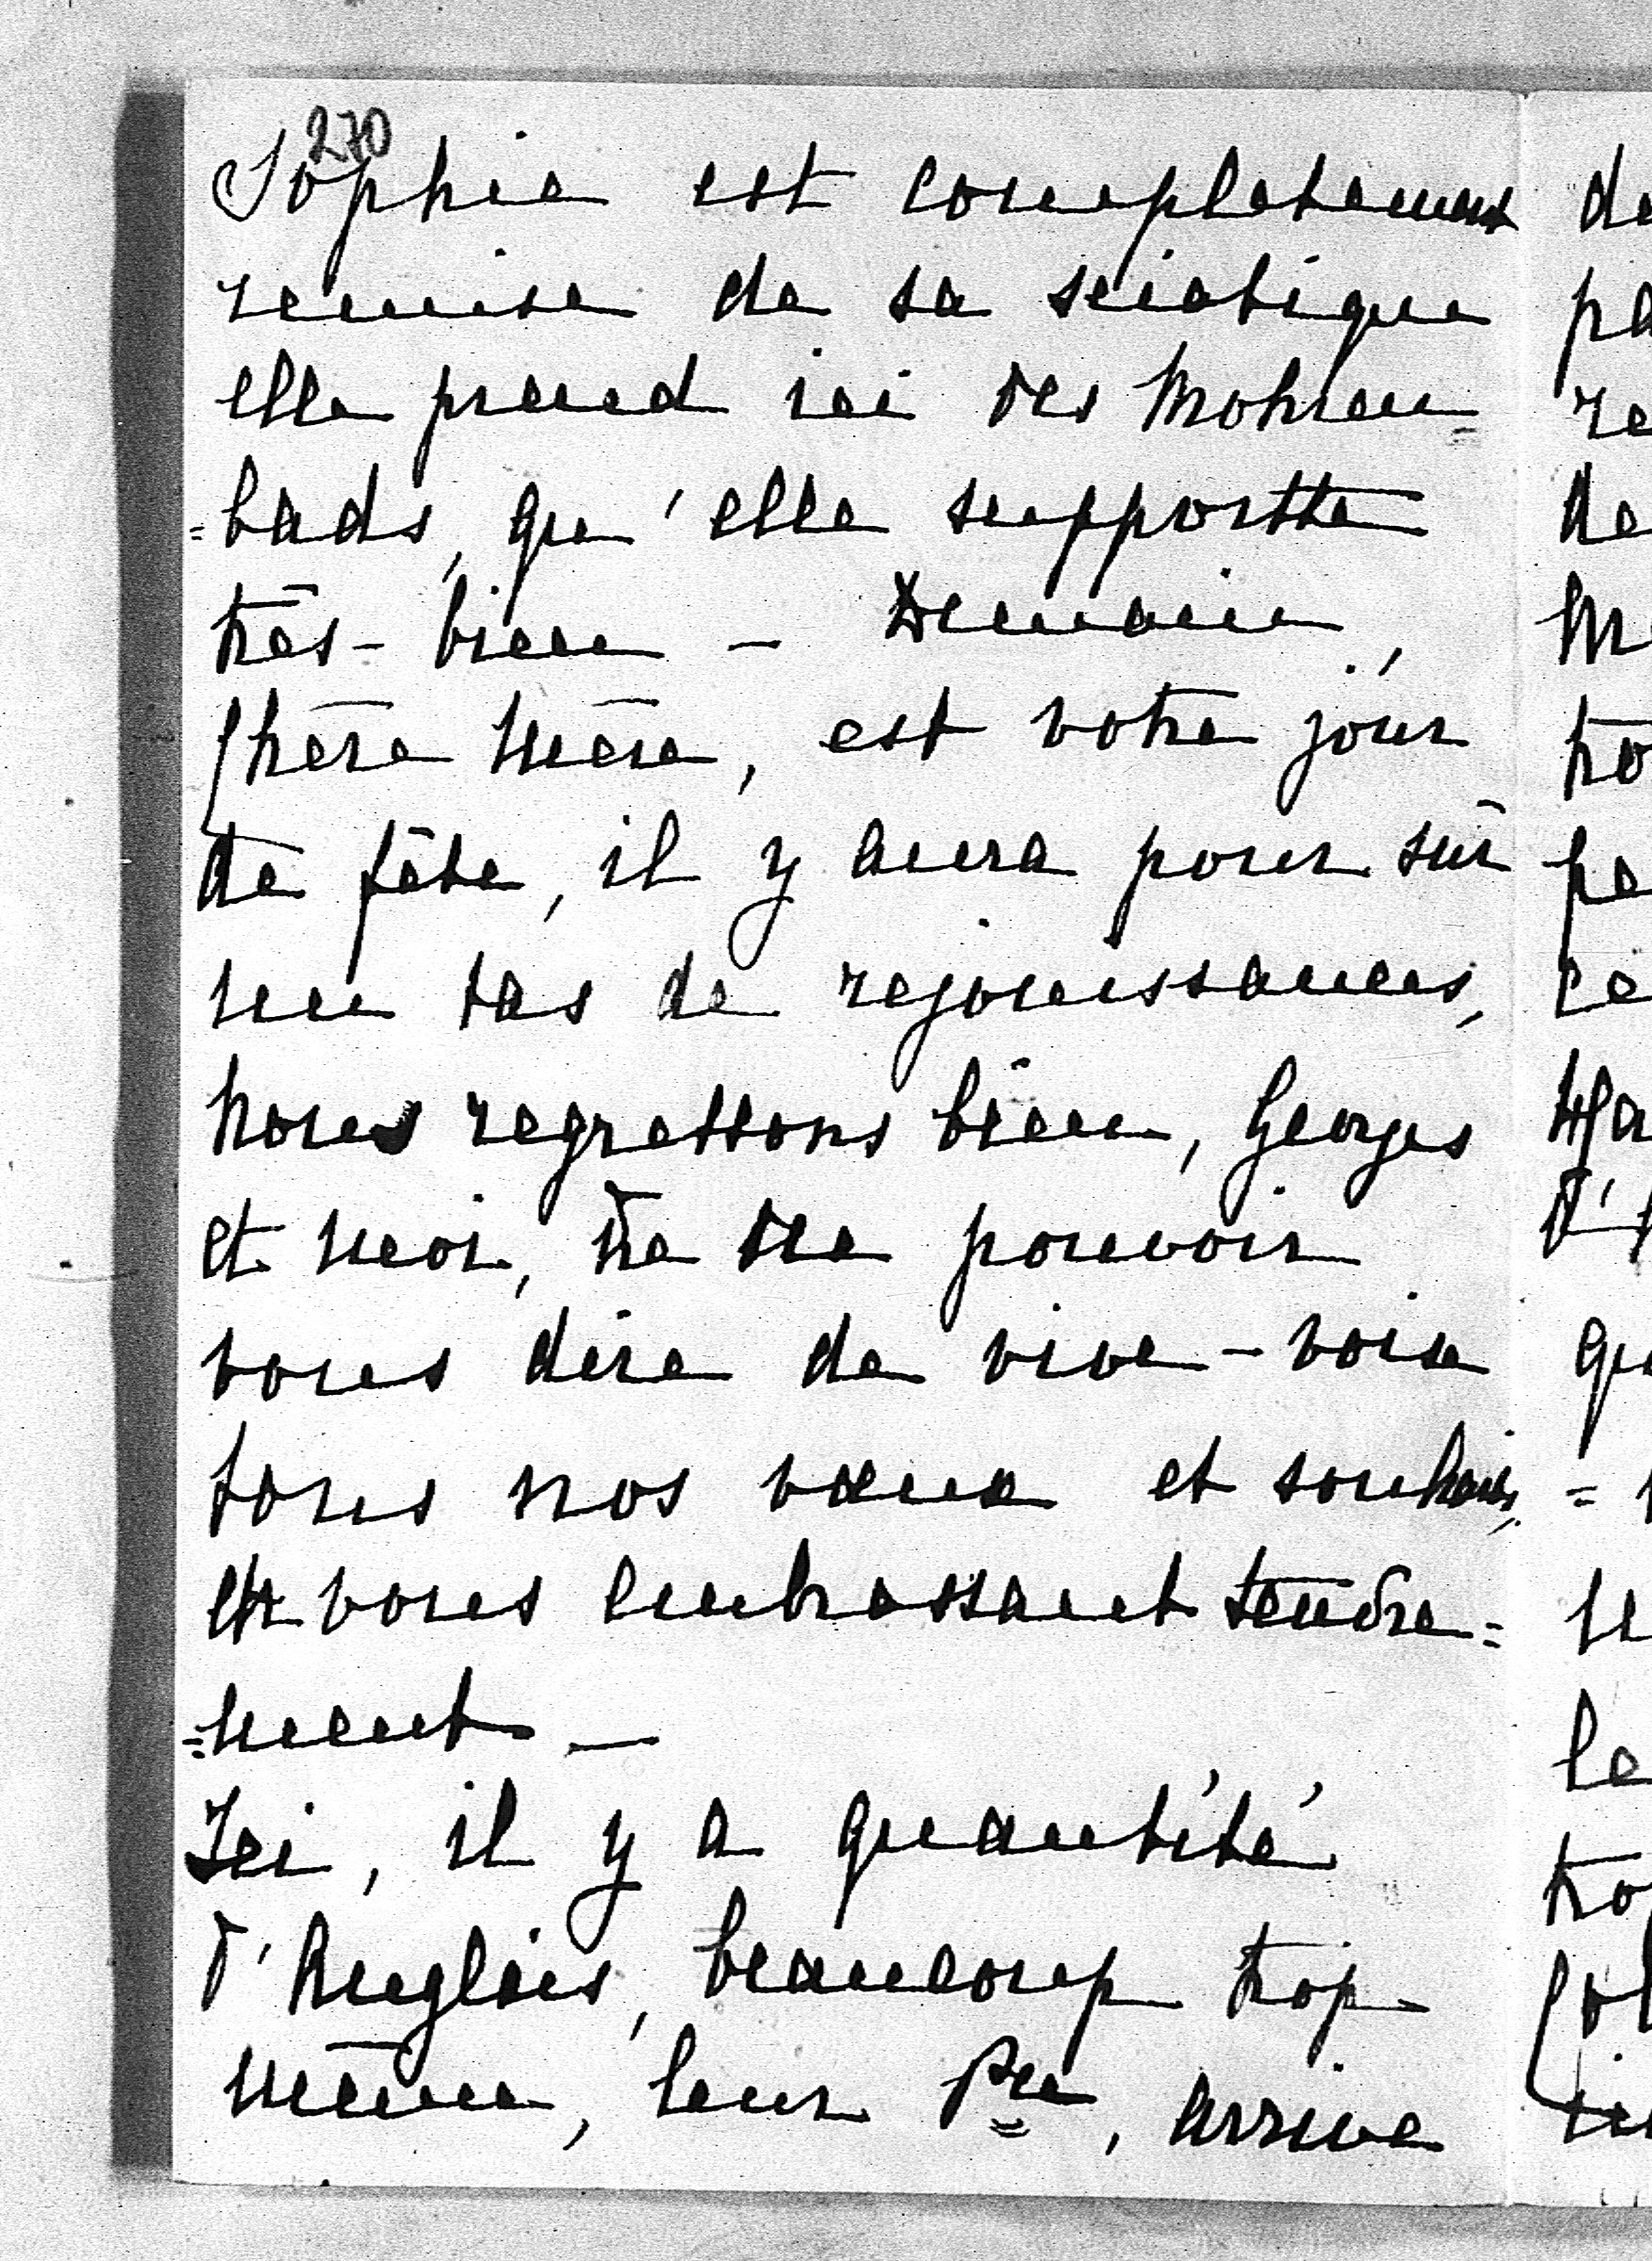 270
Sophie est completement
remise de sa sciatique
elle prend ici des Mohren=
=bads, qu'elle supportte
très-bien – Demain,
Chère Mère, est votre jour
de fête, il y aura pour sûr
un tas de rejouissances,
nous regrettons bien, Georges
et moi, de ne pouvoir
vous dire de vive-voix
tous nos vœux et souhaits,
en vous embrassant tendre=
=ment –
Ici, il y a quantité
d'Anglais, beaucoup trop
même, leur Pce, arrive